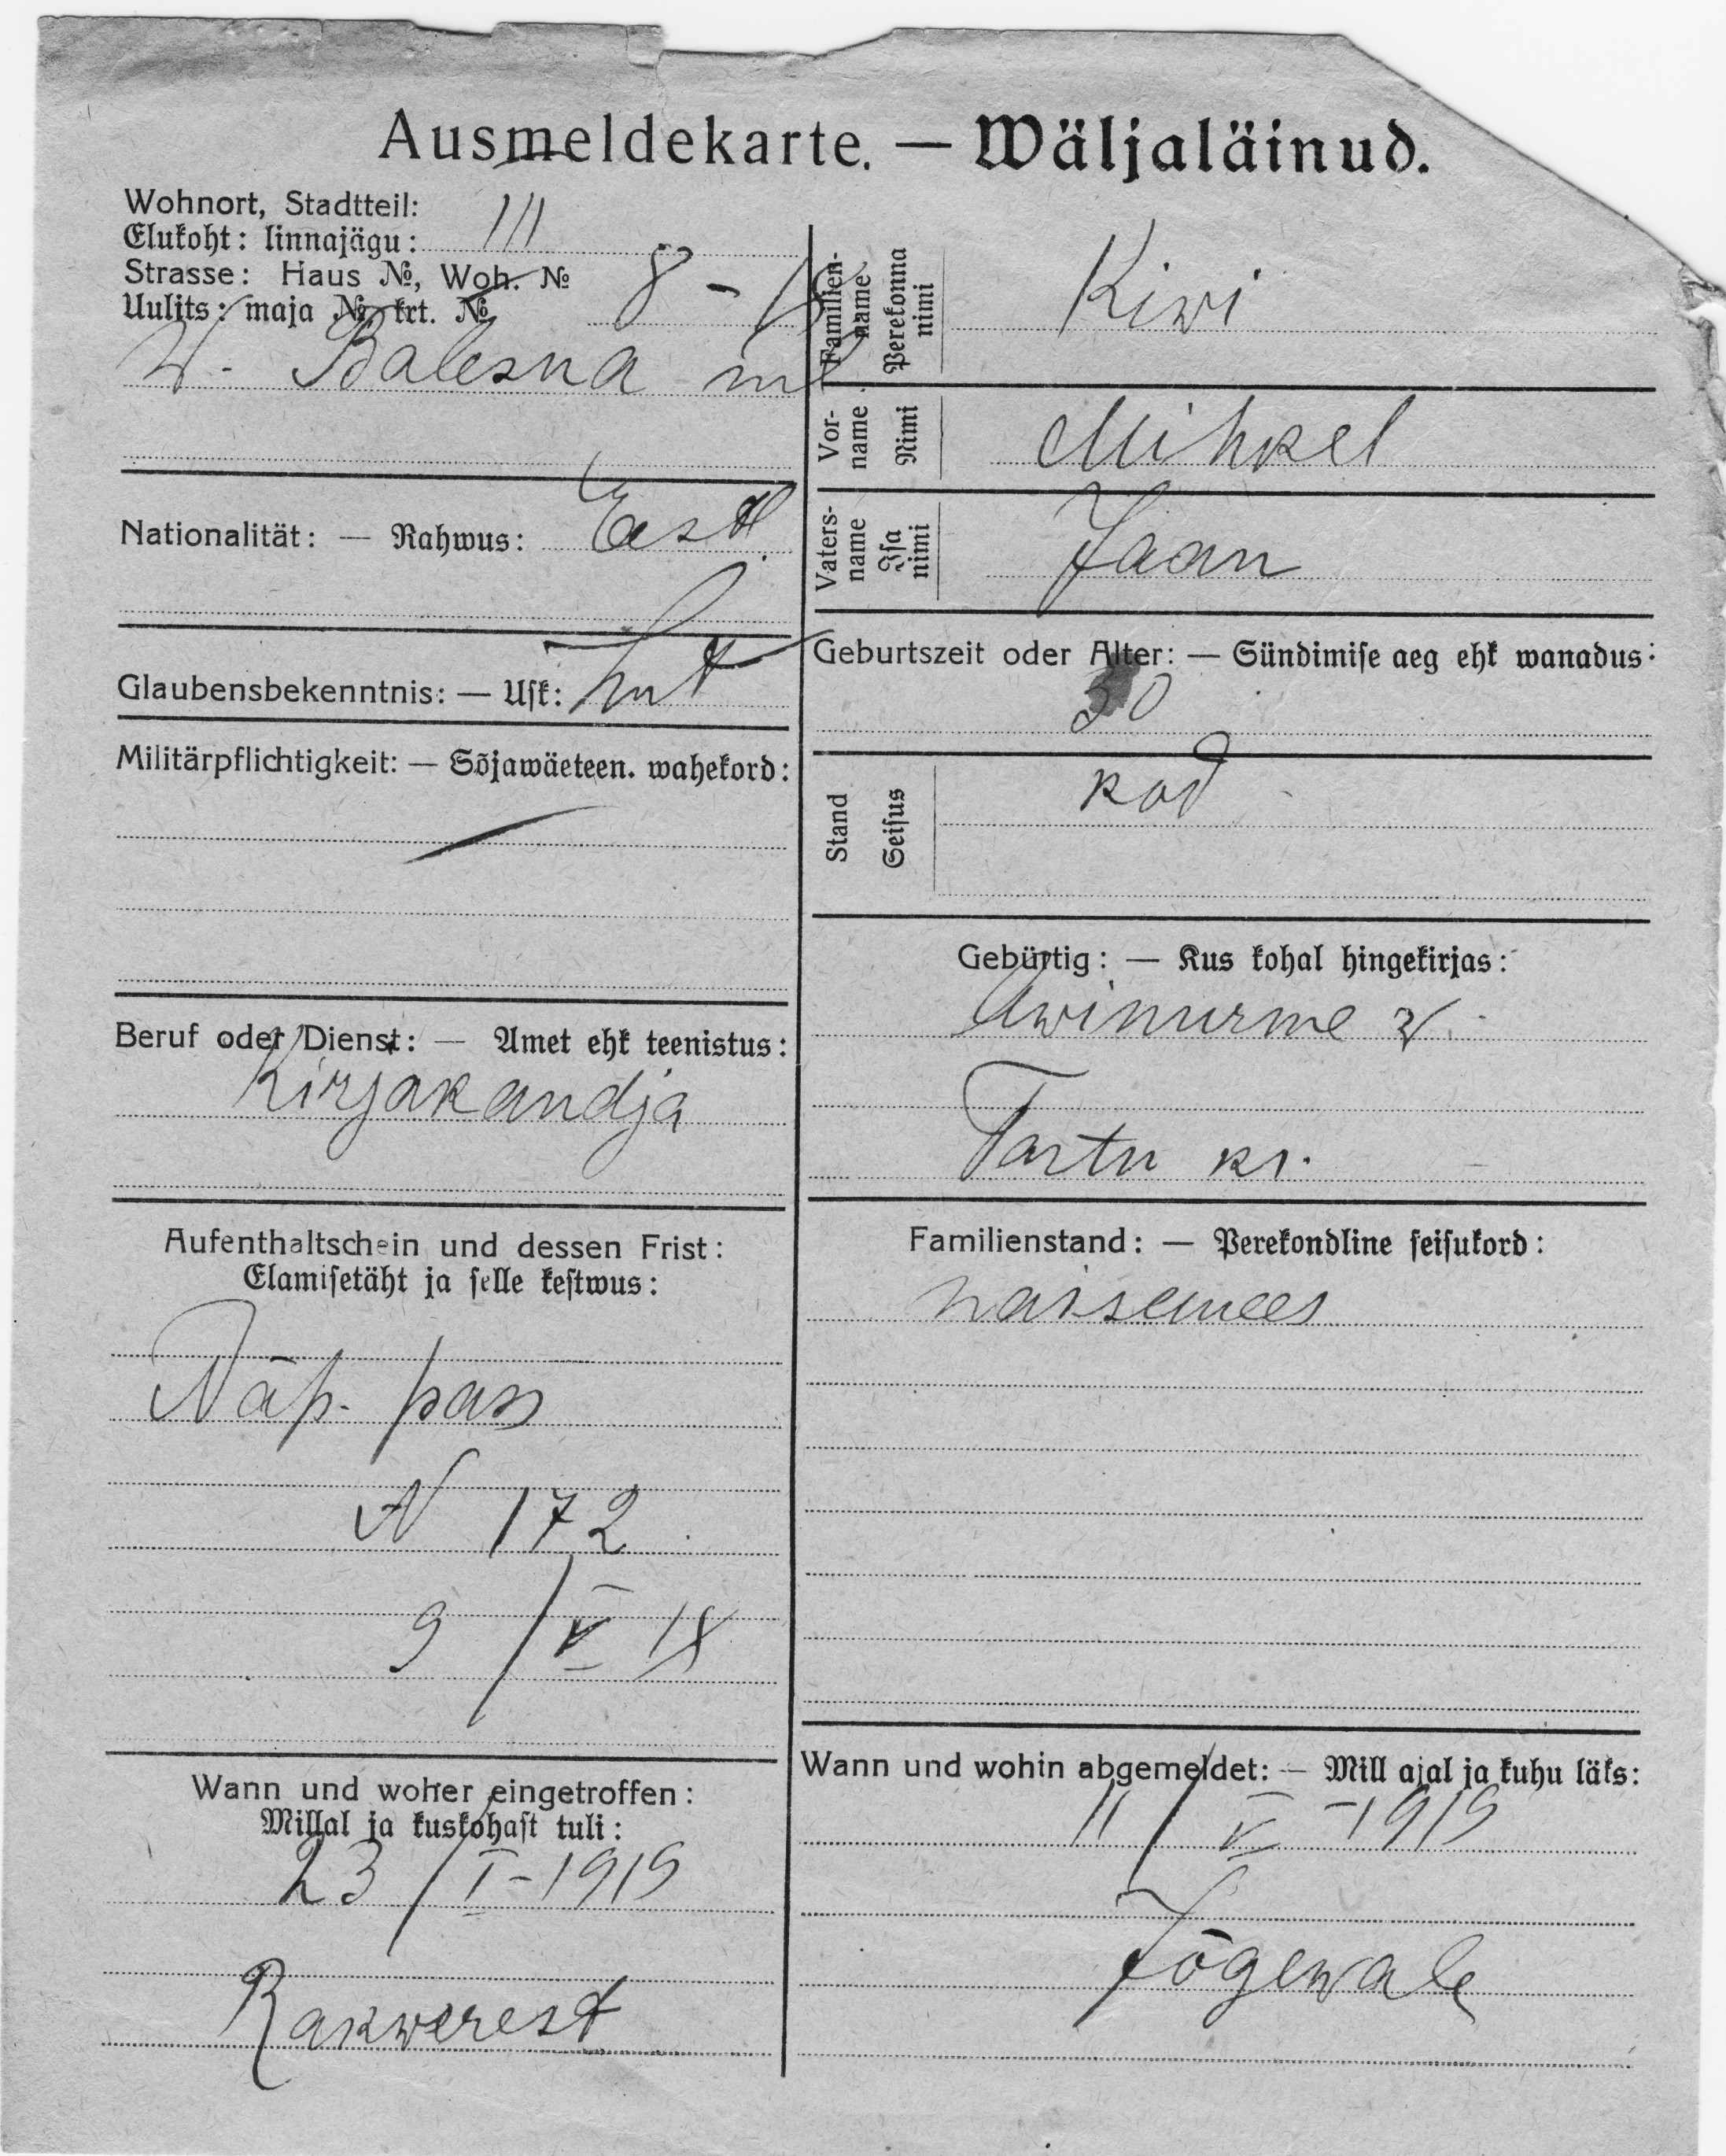 Ausmeldekarte. — Wäljaläinud.
Wohnort, Stadtteil:
Elukoht: linnajägu: III
Strasse: Haus №, Woh. №
Uulits: maja № krt. № 8 -
W. Balesna
Nationalität: — Rahwus: Eestl.
Glaubensbekenntnis: — Usk: Lut
Militärpflichtigkeit: — Sõjawäeteen. wahekord:
Beruf oder Dienst: — Amet ehk teenistus:
Kirjakandja
Aufenthaltschein und dessen Frist:
Elamisetäht ja selle kestwus:
Näp. pass
N 172
9 / V 18
Wann und woher eingetroffen:
Millal ja kuskohast tuli:
23 / I - 1919
Rakwerest
Familien-
name
Perekonna
nimi
Kiwi
Vor-
name
Nimi
Mihkel
Vaters-
name
Isa
nimi
Jaan
Geburtszeit oder Alter: — Sündimise aeg ehk wanadus:
30
Stand
Seisus
kod
Gebürtig: — Kus kohal hingekirjas:
Awinurme w.
Tartu kr.
Familienstand: — Perekondline seisukord:
naisemees
Wann und wohin abgemeldet: — Mill ajal ja kuhu läks:
11 / V - 1919
Jõgewale